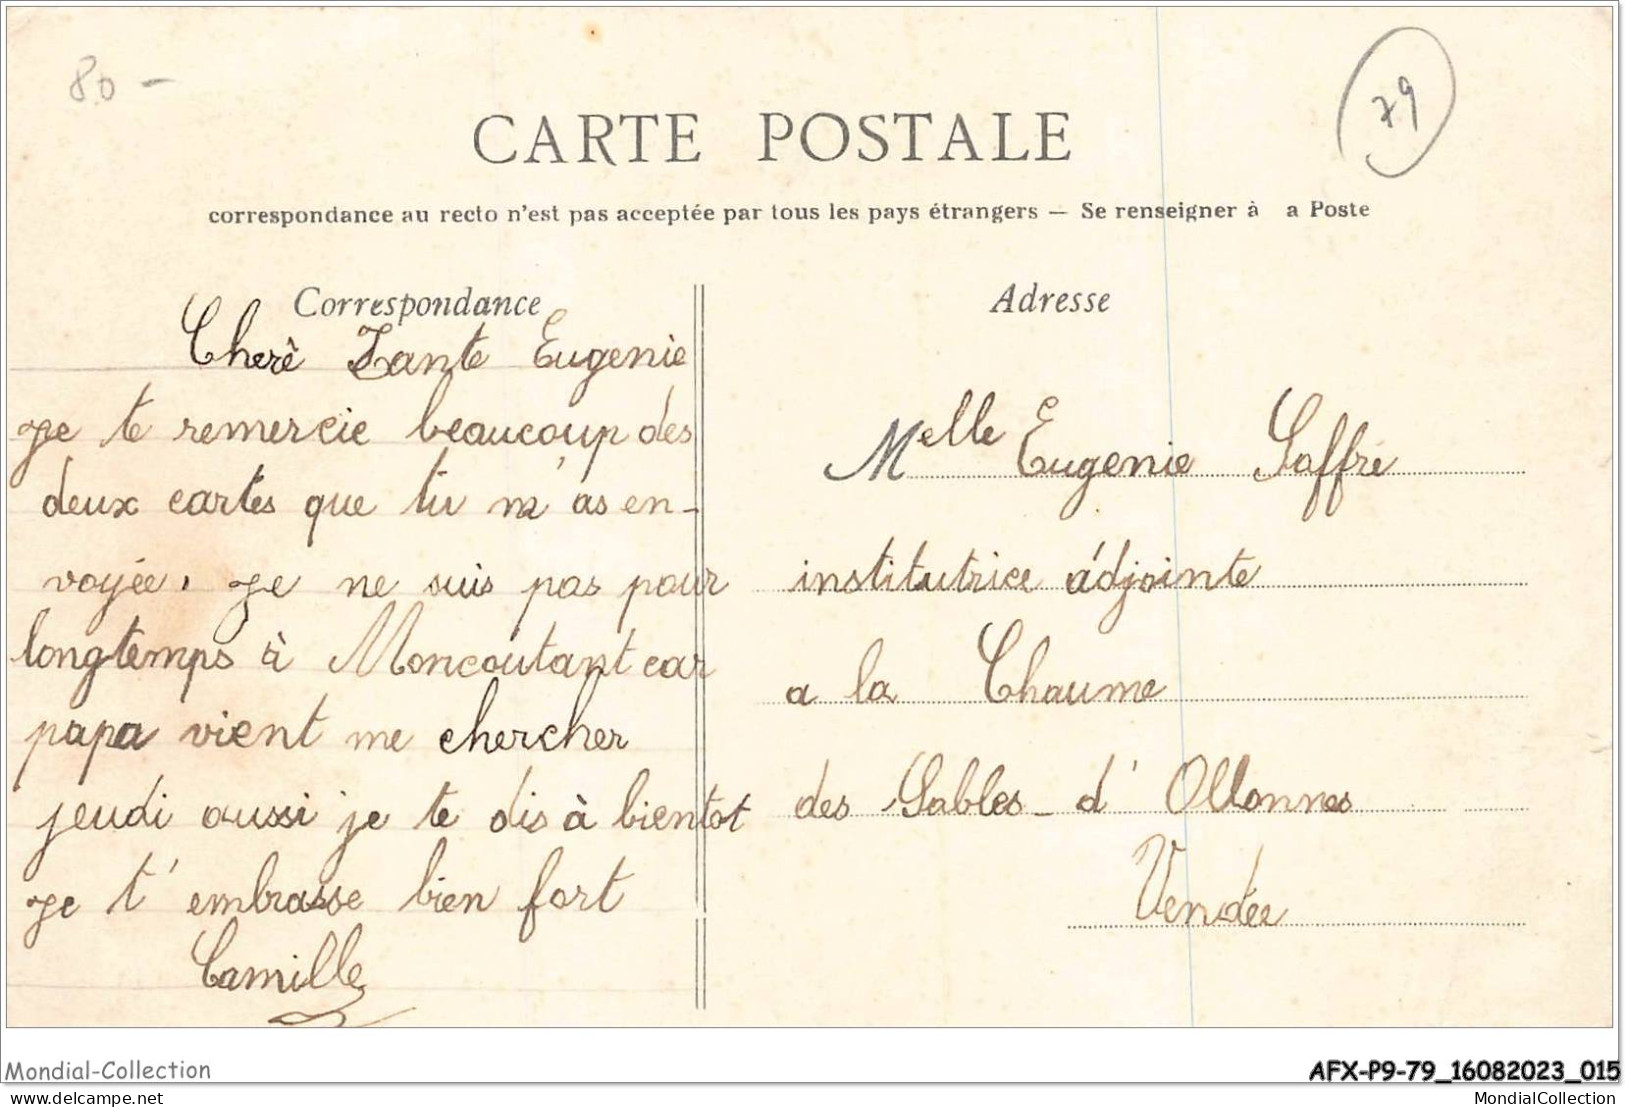 80 -
79
CARTE POSTALE
correspondance au recto n'est pas acceptée par tous les pays étrangers — Se renseigner à a Poste
Correspondance
Cherè Tante Eugenie
je te remercie beaucoup des
deux cartes que tu m'as en-
voyée. Je ne suis pas pour
longtemps à Moncoutant car
papa vient me chercher
jeudi aussi je te dis à bientot
je t'embrasse bien fort
Camille
Adresse
Melle Eugenie Saffré
institutrice adjointe
a la Chaume
des Sables-d'Ollonnes
Vendée
Mondial-Collection
AFX-P9-79_16082023_015
delcampe.net
MondialCollection